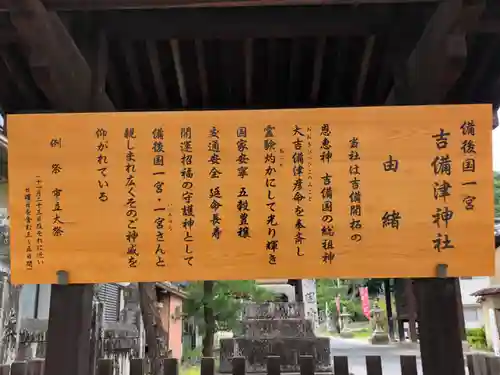 備後国一宮
吉備津神社
由緒
当社は吉備開拓の
恩恵神 吉備国の総祖神
大吉備津彦命を奉斎し
おおきびつひこのみこと
霊験灼かにして光り輝き
国家安寧 五穀豊穣
交通安全 延命長寿
開運招福の守護神として
備後国一宮・一宮さんと
親しまれ広くそのご神威を
仰がれている
例祭 市立大祭